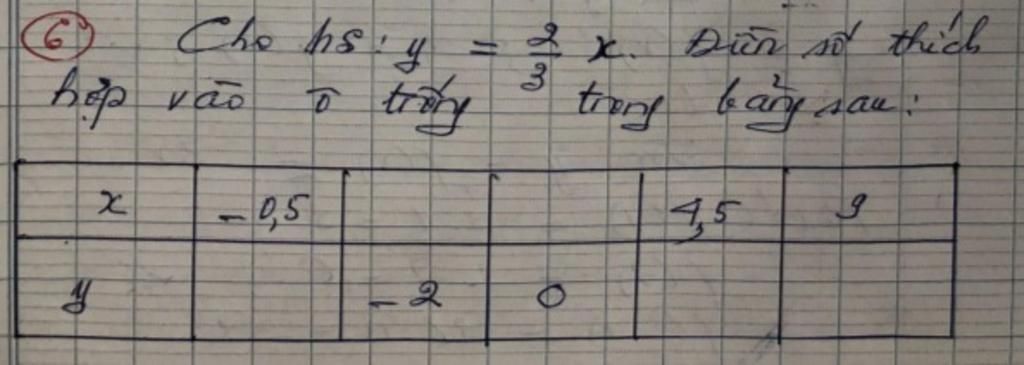 6) Cho hs: y = 2/3 x. Điền số thích
hợp vào ô trống trong bảng sau:
x -0,5 4,5 9
y -2 0